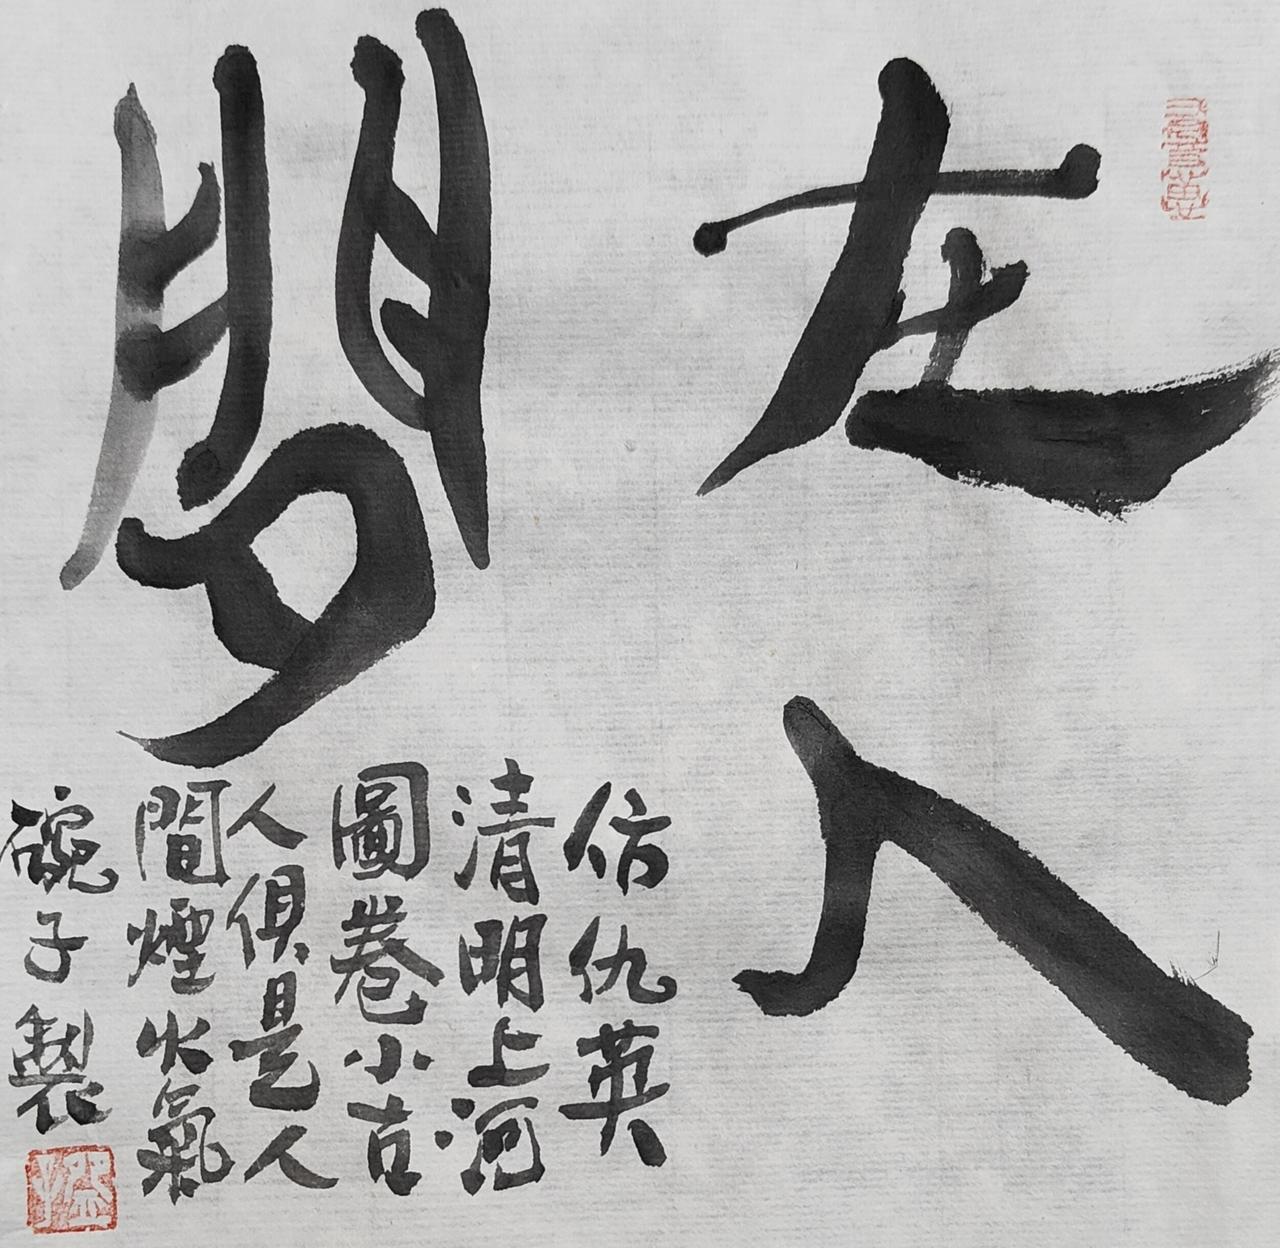 在人
間
仿仇英
清明上河
圖卷小古
人俱是人
間煙火氣
碗子製